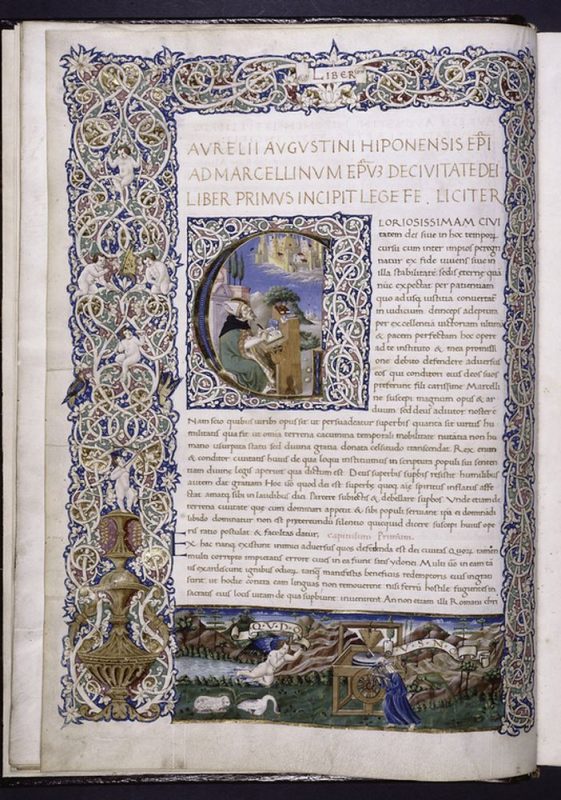 LIBER
AVRELII AVGVSTINI HIPONENSIS EPI
AD MARCELLINVM EPVȜ DE CIVITATE DEI
LIBER PRIMVS INCIPIT LEGE FE LICITER
GLORIOSISSIMAM CIVI
tatem dei siue in hoc temporum
cursu cum inter impios peregri
natur ex fide uiuens siue in
illa stabilitate sedis eterne quā
nūc expectat per patientiam
quo adusq iustitia conuertat
in iudicium deinceps adeptura
per excellentiā uictoriam ultimā
& pacem perfectam hoc opere
ad te instituto & mea promissi
one debito defendere aduersus
eos qui conditori eius deos suos
preferunt fili carissime Marcelli
ne suscepi magnum opus & ar
duum sed deus adiutor noster e
Nam scio quibus uiribus opus sit ut persuadeatur superbis quanta sit uirtus hu
militatis qua fit ut omia terrena cacumina temporali mobilitate nutantia non hu
mano usurpata fastu sed diuina gratia donata celsitudo transcendat. Rex enim
& conditor ciuitatis huius de qua loqui instituimus in scriptura populi sui senten
tiam diuine legis aperuit qua dictum est. Deus superbis resistit humilibus
autem dat gratiam Hoc uo quod dei est superbe quoq aie spiritus inflatus affe
ctat amatq sibi in laudibus dici Parcere subiectis & debellare supbos Vnde etiam de
terrena ciuitate que cum dominari appetit & si populi seruiant ipa ei dominādi
libido dominatur non est pretereundū silentio quicquid dicere suscepti huius ope
ris ratio postulat & facultas datur, capitulum Primum.
Ex hac nanq existunt inimici aduersus quos defendenda est dei ciuitas Quorum tamen
multi correpto impietatis errore ciues in ea fiunt satis ydonei Multi uo in eam ta
tis exardescunt ignibus odiorum tanq manifestis beneficiis redemptoris eius ingrati
sunt ut hodie contra eam linguas non mouerent nisi ferrum hostile fugientes in
sacratis eius locis uitam de qua supbiunt inuenirent An non etiam illi Romani christi